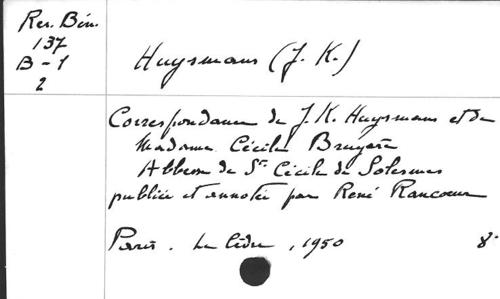 Res. Bin.
137
B-1
2
Huysmans (J. K.)
Correspondance de J. K. Huysmans et de
Madame Cécile Bruyère
Abbesse de Ste Cécile de Solesmes
publiée et annotée par René Rancoeur
Paris. Le Cèdre, 1950
8°